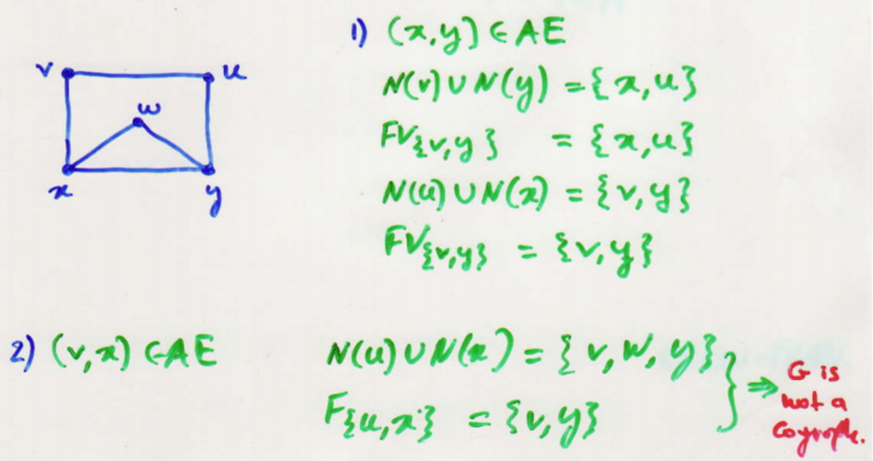 v
u
w
x
y
1) (x,y) ∈ AE
N(v) ∪ N(y) = {x,u}
FV{v,y} = {x,u}
N(u) ∪ N(x) = {v,y}
FV{v,y} = {v,y}
2) (v,x) ∈ AE
N(u) ∪ N(x) = {v,w,y}
F{u,x} = {v,y}
} ⇒ G is
not a
Cograph.